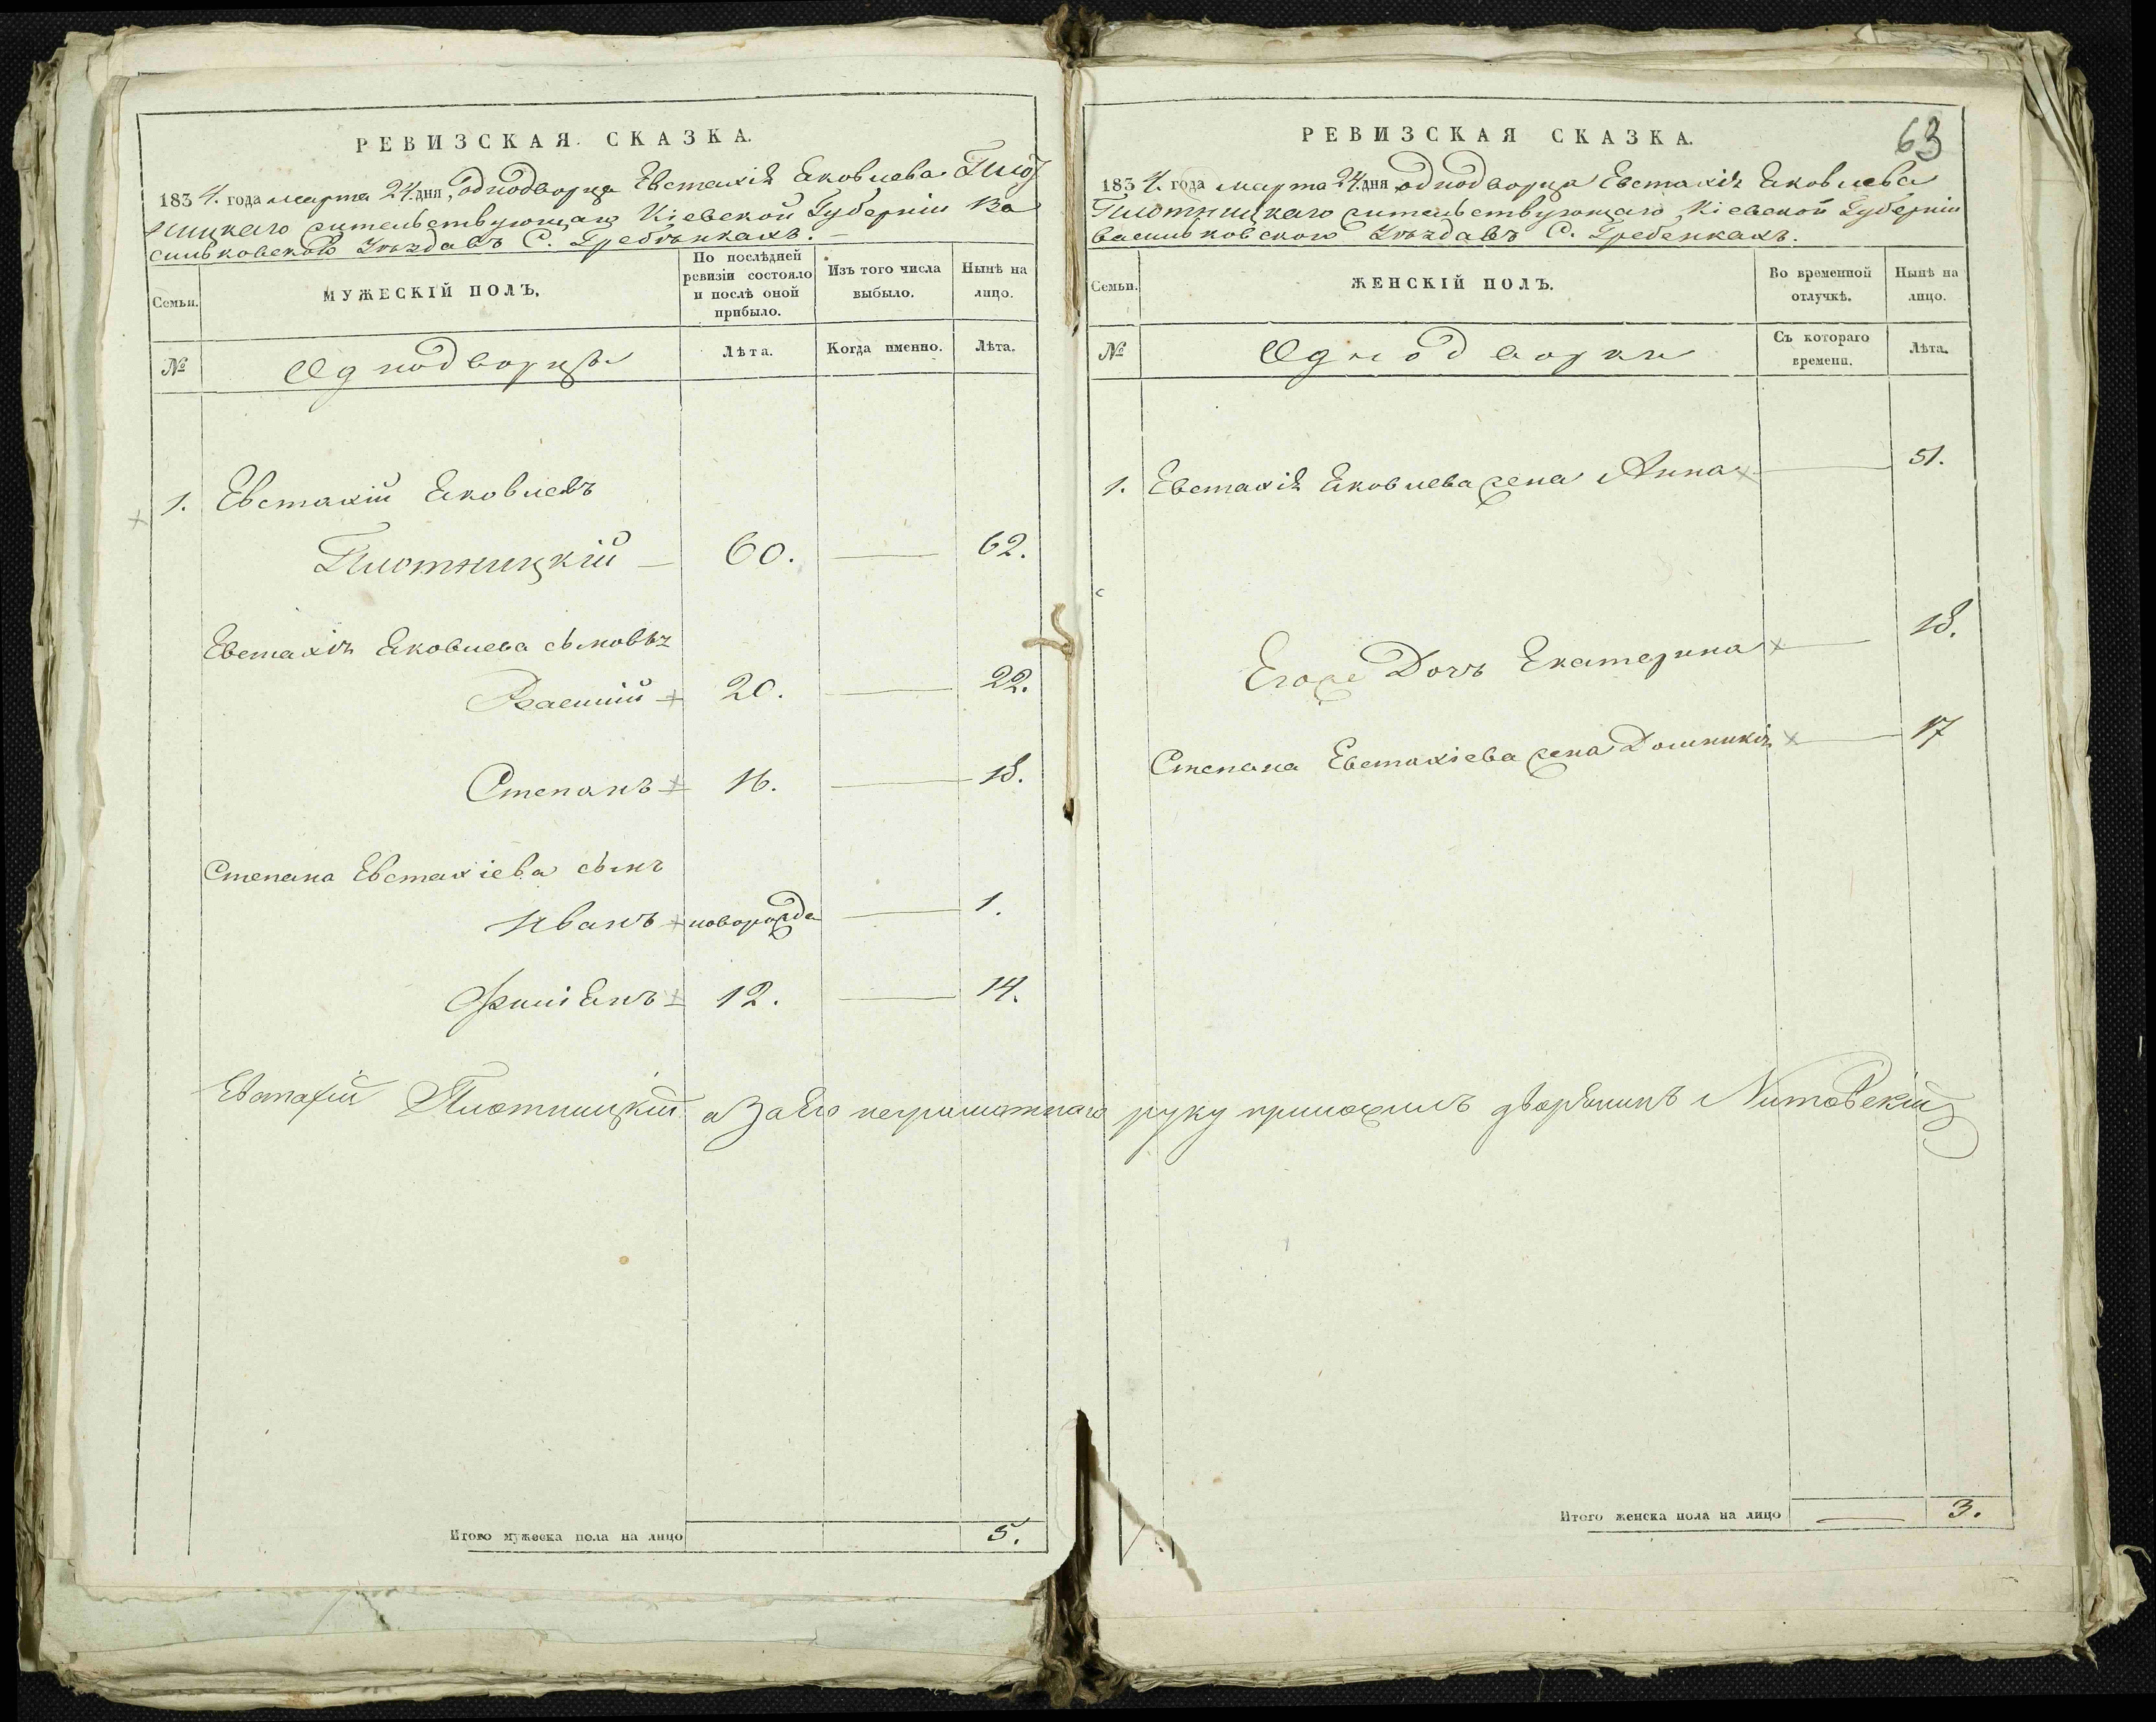 РЕВИЗСКАЯ СКАЗКА.
1834. года марта 24. дня, однодворца Евстахія Яковлева Плот
ницкаго жительствующаго Кіевской Губерніи Ва
сильковского Уѣзда въ С. Гребѣнкахъ.
Семьи.
МУЖЕСКІЙ ПОЛЪ.
По послѣдней ревизіи состояло и послѣ оной прибыло.
Изъ того числа выбыло.
Нынѣ на лицо.
№
Однодворцы
Лѣта.
Когда именно.
Лѣта.
1. Евстахій Яковлевъ
Плотницкій — 60. — 62.
Евстахія Яковлева сыновья
20. — 22.
Степанъ 16. — 18.
Степана Евстахіева сынъ
Иванъ новорожде — 1.
12. — 14.
Евстафій Плотницкій а за его неграмотнаго руку приложилъ дворянинъ
Итого мужеска пола на лицо 5.
РЕВИЗСКАЯ СКАЗКА.
63
1834. года марта 24. дня однодворца Евстахія Яковлева
Плотницкаго жительствующаго Кіевской Губерніи
Васильковского Уѣзда въ С. Гребенкахъ.
Семьи.
ЖЕНСКІЙ ПОЛЪ.
Во временной отлучкѣ.
Нынѣ на лицо.
№
Однодворки
Съ котораго времени.
Лѣта.
1. Евстахія Яковлева жена Анна — 51.
Егоже Дочь Екатерина — 18.
Степана Евстахіева жена — 17
Итого женска пола на лицо — 3.